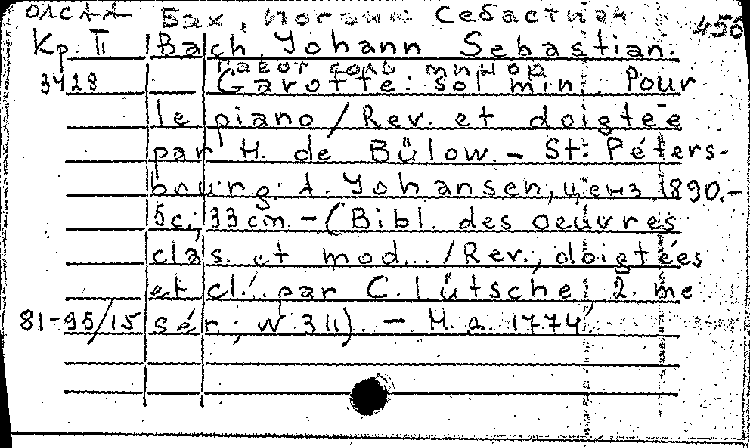 Бах, Иоганн Себастиан 456
Кр. II Bach, Johann Sebastian.
Гавот соль минор
3428 Gavotte: sol min. Pour
le piano / Rev. et doigtée
par H. de Bülow. - St. Péters-
bourg: A. Johansen, ценз 1890.-
5c.; 33cm. - (Bibl. des oeuvres
clas. et mod. / Rev., doigtées
et cl. par C. Lütsche; 2. me
81-95/15 sér.; N 311). - H. д. 1774